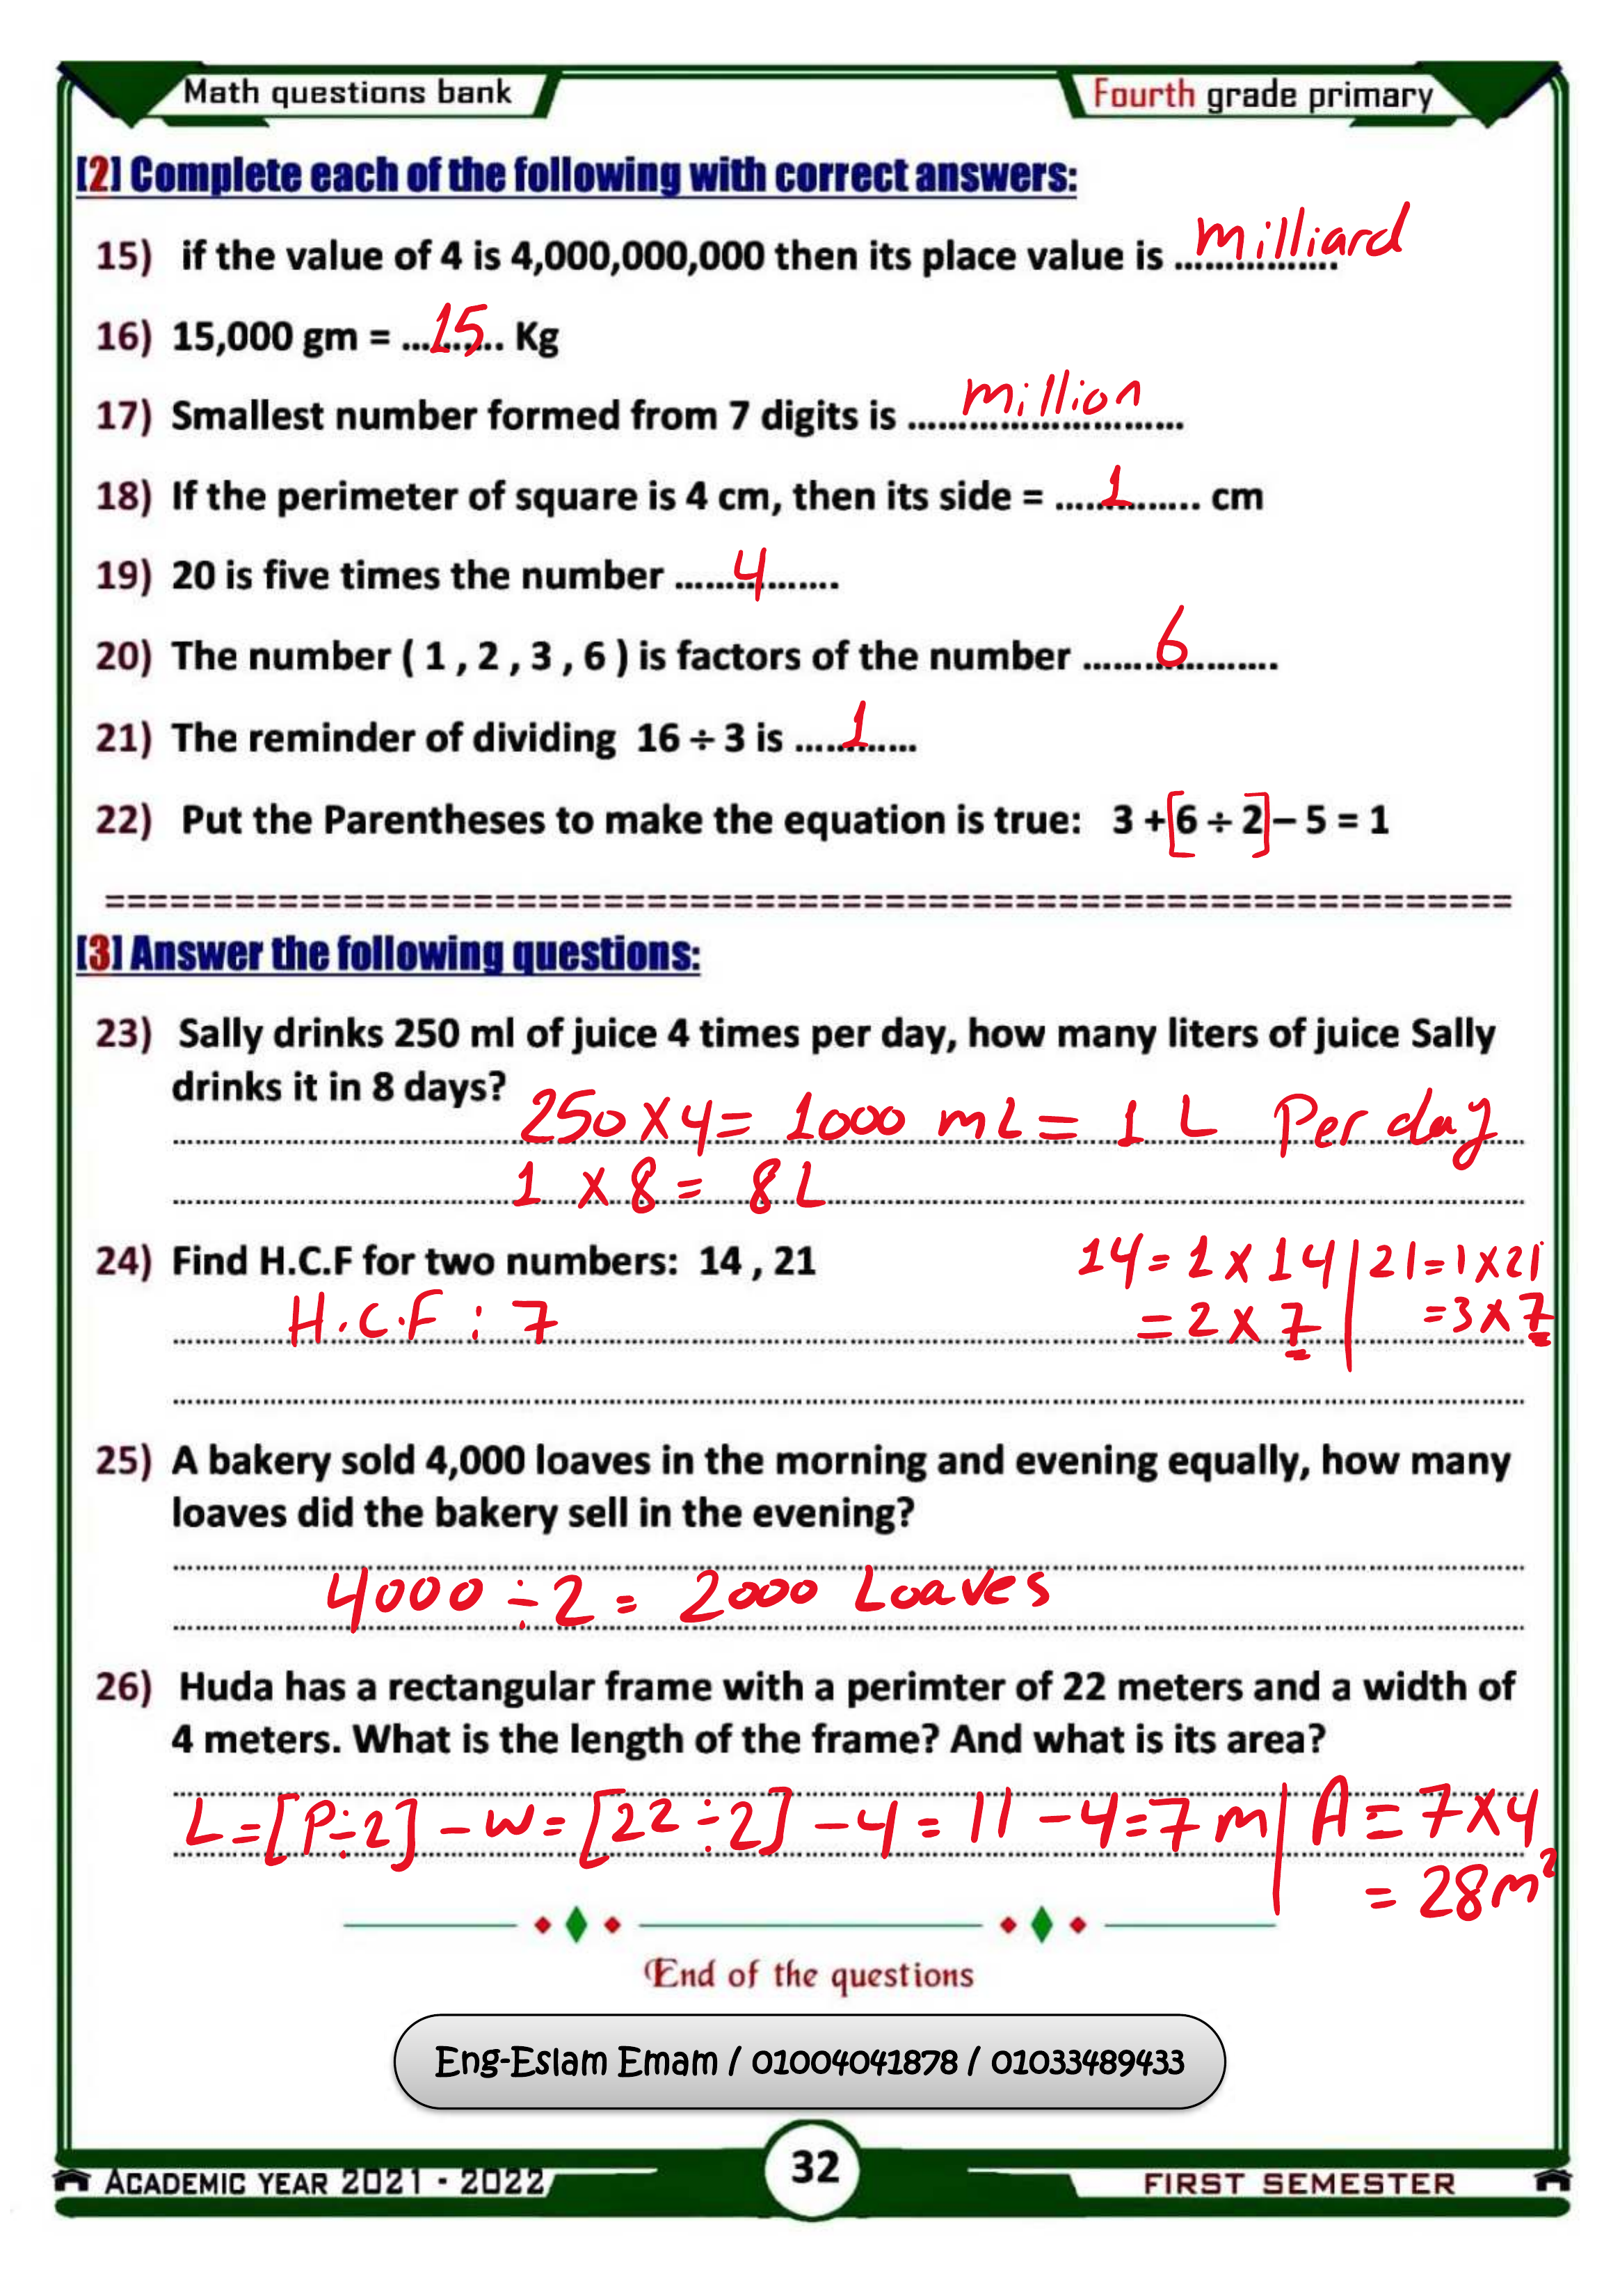 Math questions bank
Fourth grade primary
[2] Complete each of the following with correct answers:
15) if the value of 4 is 4,000,000,000 then its place value is ................. milliard
16) 15,000 gm = ...15... Kg
17) Smallest number formed from 7 digits is ........................... million
18) If the perimeter of square is 4 cm, then its side = .....1....... cm
19) 20 is five times the number ......4........
20) The number ( 1 , 2 , 3 , 6 ) is factors of the number .......6...........
21) The reminder of dividing 16 ÷ 3 is .....1......
22) Put the Parentheses to make the equation is true: 3 + [6 ÷ 2] – 5 = 1
[3] Answer the following questions:
23) Sally drinks 250 ml of juice 4 times per day, how many liters of juice Sally
drinks it in 8 days?
250 X 4 = 1000 mL = 1 L Per day
1 X 8 = 8 L
24) Find H.C.F for two numbers: 14 , 21
14 = 1 X 14 | 21 = 1 X 21
H.C.F : 7
= 2 X 7 | = 3 X 7
25) A bakery sold 4,000 loaves in the morning and evening equally, how many
loaves did the bakery sell in the evening?
4000 ÷ 2 = 2000 Loaves
26) Huda has a rectangular frame with a perimter of 22 meters and a width of
4 meters. What is the length of the frame? And what is its area?
L = [P ÷ 2] – W = [22 ÷ 2] – 4 = 11 – 4 = 7 m | A = 7 X 4
= 28 m²
End of the questions
Eng-Eslam Emam / 01004041878 / 01033489433
ACADEMIC YEAR 2021 - 2022
32
FIRST SEMESTER